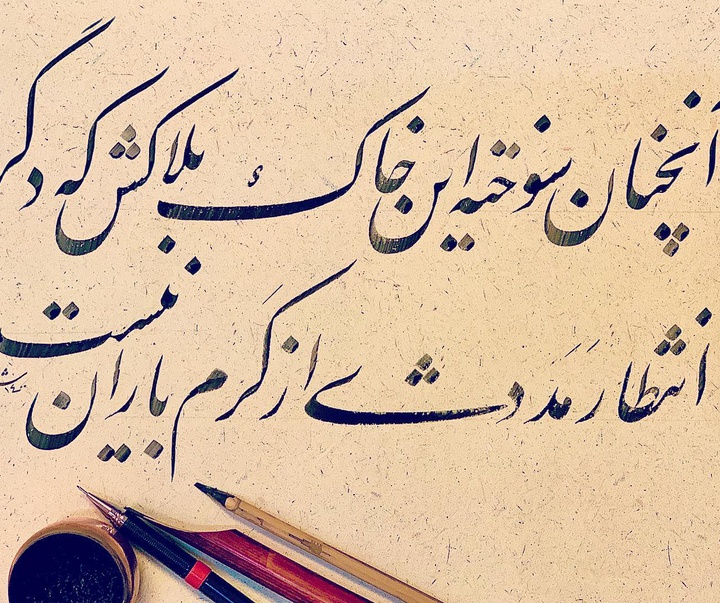 آنچنان سوخته این خاکِ بلاکش که دگر
انتظار مَدَدی از کَرم باران نیست